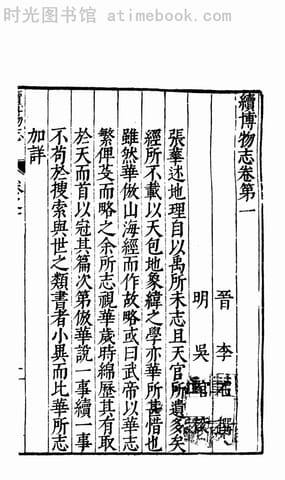 时光图书馆 - atimebook.com
續博物志卷第一
晉 李石 撰
明 吳琯 校
張華述地理自以禹所未志且天官所遺多矣
經所不載以天包地象緯之學亦華所甚惜也
雖然華倣山海經而作故略或曰武帝以華志
繁俾芟而略之余所志視華歲時綿歷其有取
於天而首以冠其篇次第倣華說一事續一事
不茍於搜索與世之類書者小異而比華所志
加詳